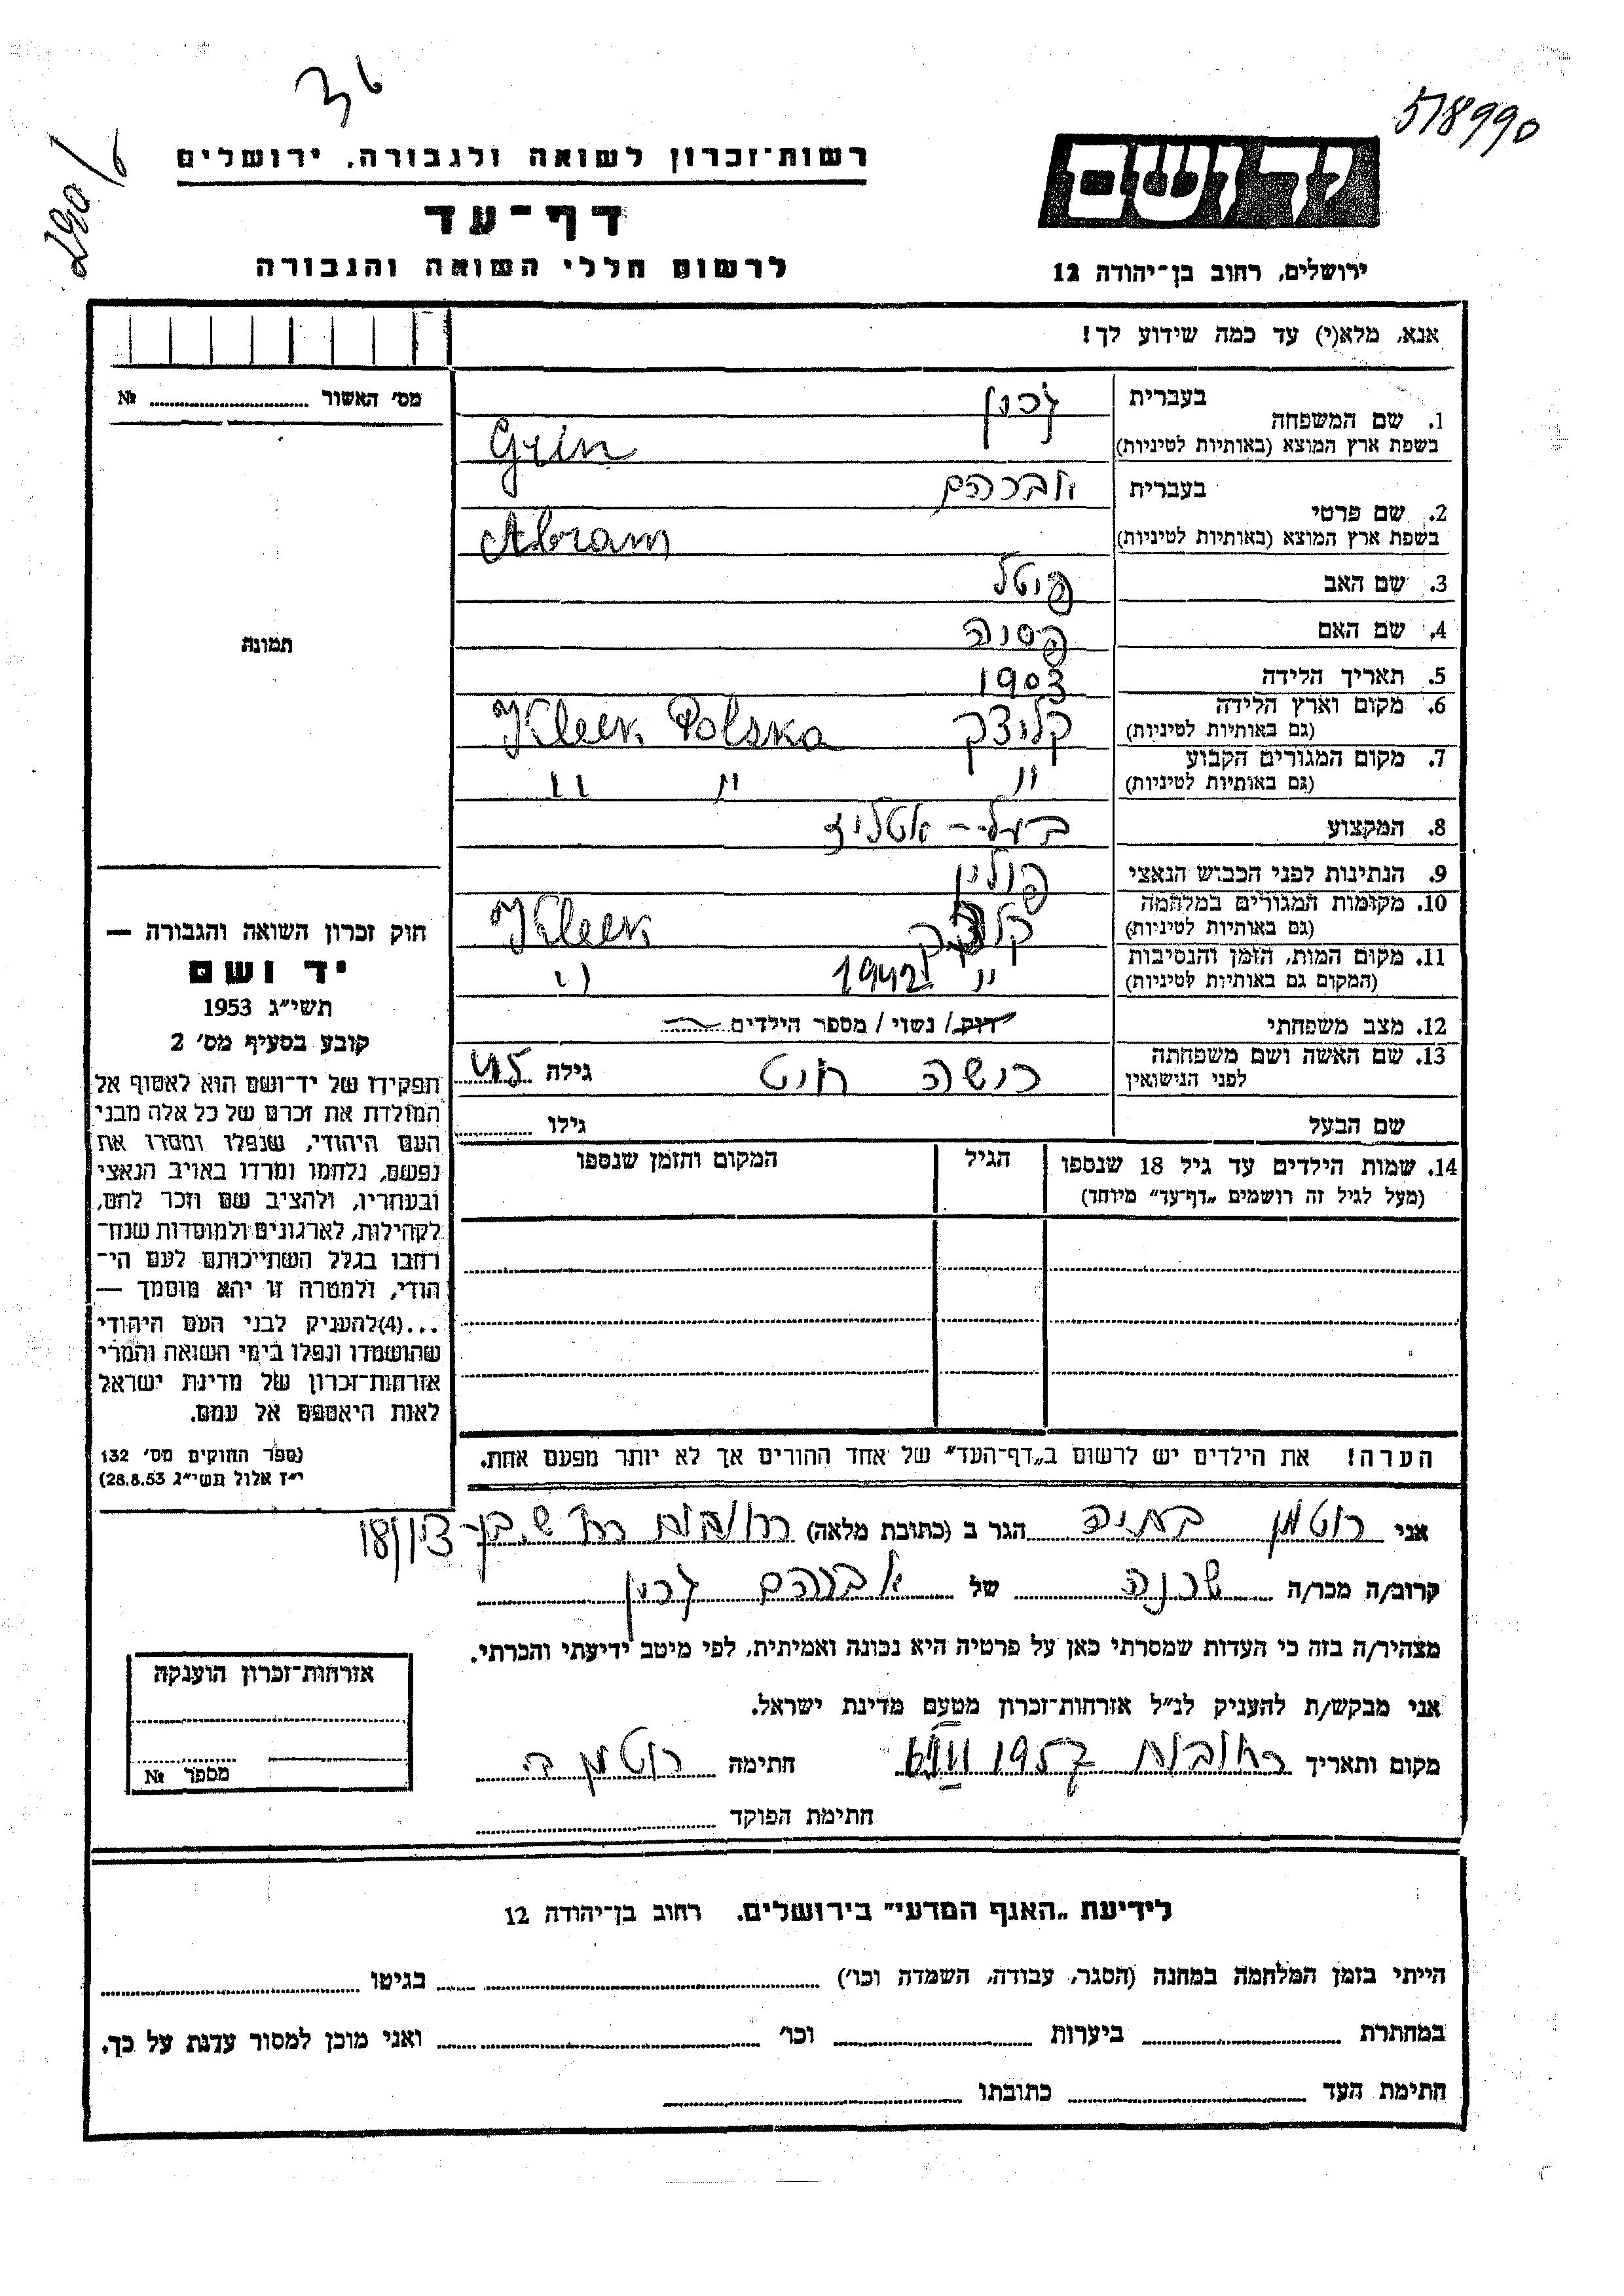 518990
יד ושם
ירושלים, רחוב בן־יהודה 12
רשות־זכרון לשואה ולגבורה, ירושלים
דף־עד
לרשום חללי השואה והגבורה
אנא, מלא(י) עד כמה שידוע לך!
מס׳ האשור №
1. שם המשפחה
בעברית
גרין
בשפת ארץ המוצא (באותיות לטיניות)
Grin
2. שם פרטי
בעברית
אברהם
בשפת ארץ המוצא (באותיות לטיניות)
Abram
3. שם האב
פיטל
4. שם האם
פסיה
5. תאריך הלידה
1903
6. מקום וארץ הלידה
(גם באותיות לטיניות)
קלצק Kleck Polska
7. מקום המגורים הקבוע
(גם באותיות לטיניות)
״ ״ ״
8. המקצוע
בעל-אטליז
9. הנתינות לפני הכבוש הנאצי
פולין
10. מקומות המגורים במלחמה
(גם באותיות לטיניות)
קלצק Kleck
11. מקום המות, הזמן והנסיבות
(המקום גם באותיות לטיניות)
״ 1942 ״
12. מצב משפחתי
רוק / נשוי / מספר הילדים
13. שם האשה ושם משפחתה
לפני הנישואין
גילה
שם הבעל
גילו
14. שמות הילדים עד גיל 18 שנספו
(מעל לגיל זה רושמים „דף־עד״ מיוחד)
הגיל
המקום והזמן שנספו
הערה! את הילדים יש לרשום ב„דף־העד״ של אחד ההורים אך לא יותר מפעם אחת.
תמונה
חוק זכרון השואה והגבורה —
יד ושם
תשי״ג 1953
קובע בסעיף מס׳ 2
תפקידו של יד־ושם הוא לאסוף אל
המולדת את זכרם של כל אלה מבני
העם היהודי, שנפלו ומסרו את
נפשם, נלחמו ומרדו באויב הנאצי
ובעוזריו, ולהציב שם וזכר להם,
לקהילות, לארגונים ולמוסדות שנח־
רחבו בגלל השתייכותם לעם הי־
הודי, ולמטרה זו יהא מוסמך —
...(4)להעניק לבני העם היהודי
שהושמדו ונפלו בימי השואה והמרי
אזרחות־זכרון של מדינת ישראל
לאות היאספם אל עמם.
(ספר החוקים מס׳ 132
י״ז אלול תשי״ג 28.8.53)
אני רוטמן בתיה הגר ב (כתובת מלאה) רחובות בן-ציון 18
קרוב/ה מכר/ה שכנה של אברהם גרין
מצהיר/ה בזה כי העדות שמסרתי כאן על פרטיה היא נכונה ואמיתית, לפי מיטב ידיעתי והכרתי.
אני מבקש/ת להעניק לנ״ל אזרחות־זכרון מטעם מדינת ישראל.
מקום ותאריך רחובות 1957 חתימה רוטמן ב
חתימת הפוקד
אזרחות־זכרון הוענקה
מספר №
לידיעת „האגף המדעי״ בירושלים. רחוב בן־יהודה 12
הייתי בזמן המלחמה במחנה (הסגר, עבודה, השמדה וכו׳) בגיטו
במחתרת ביערות וכו׳ ואני מוכן למסור עדות על כך.
חתימת העד כתובתו